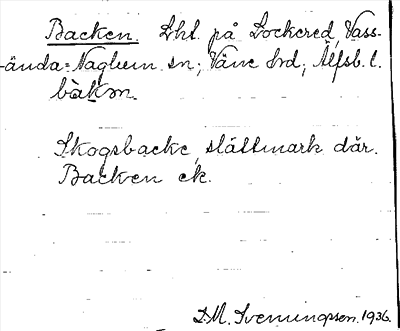 Backen. Lht. på Lockered, Väss-
-ända-Naglum sn; Väne hrd; Älfsb. l.
bàkm.
Skogsbacke, slättmark där.
Backen ek.
D.M. Svenningsen. 1936.